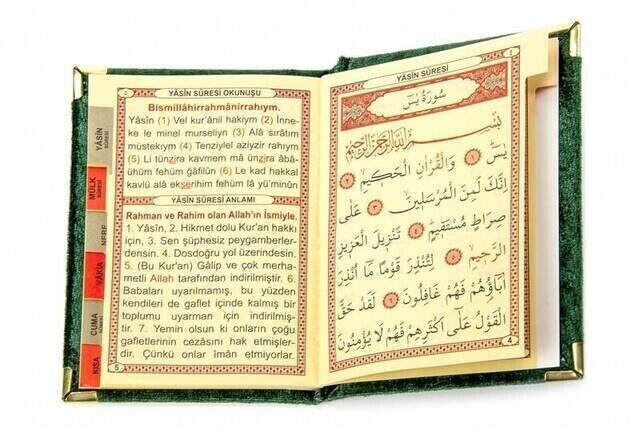 YÂSÎN SÛRESİ OKUNUŞU
Bismillâhirrahmânirrahıym.
Yâsîn (1) Vel kur'ânil hakiym (2) İnne-
ke le minel murseliyn (3) Alâ sırâtım
müstekıym (4) Tenziylel aziyzir rahıym
(5) Li tünzira kavmem mâ ünzira âbâ-
ühüm fehüm ğâfilûn (6) Le kad hakkal
kavlü alâ ekserihim fehüm lâ yü'minûn
YÂSÎN SÛRESİ ANLAMI
Rahman ve Rahim olan Allah'ın İsmiyle.
1. Yâsîn, 2. Hikmet dolu Kur'an hakkı
için, 3. Sen şüphesiz peygamberler-
densin. 4. Dosdoğru yol üzerindesin.
5. (Bu Kur'an) Gâlip ve çok merha-
metli Allah tarafından indirilmiştir. 6.
Babaları uyarılmamış, bu yüzden
kendileri de gaflet içinde kalmış bir
toplumu uyarman için indirilmiş-
tir. 7. Yemin olsun ki onların çoğu
gafletlerinin cezasını hak etmişler-
dir. Çünkü onlar îmân etmiyorlar.
5
YÂSÎN
SÛRESİ
MÜLK
SÛRESİ
NEBE
VÂKIA
CUMA
KISA
YÂSÎN SÛRESİ
٤
سُورَةُ يٰسٓ
بِسْمِ اللهِ الرَّحْمٰنِ الرَّحِيمِ
يٰسٓ ١ وَالْقُرْاٰنِ الْحَكِيمِ ٢
اِنَّكَ لَمِنَ الْمُرْسَلِينَ ٣ عَلٰى
صِرَاطٍ مُسْتَقِيمٍ ٤ تَنْزِيلَ الْعَزِيزِ
الرَّحِيمِ ٥ لِتُنْذِرَ قَوْمًا مَٓا اُنْذِرَ
اٰبَٓاؤُهُمْ فَهُمْ غَافِلُونَ ٦ لَقَدْ حَقَّ
الْقَوْلُ عَلٰٓى اَكْثَرِهِمْ فَهُمْ لَا يُؤْمِنُونَ
4